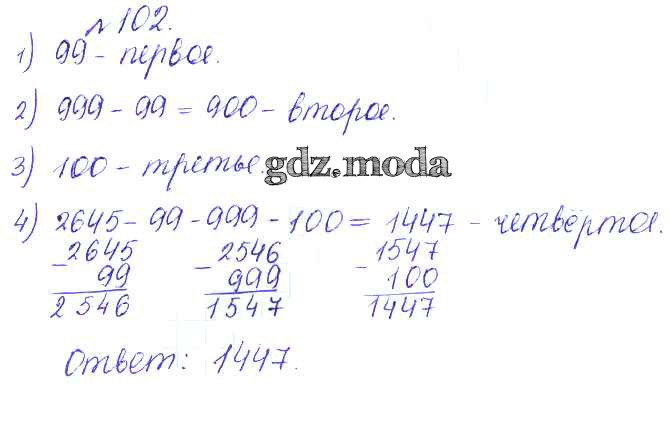 № 102.
1) 99 - первое.
2) 999 - 99 = 900 - второе.
3) 100 - третье.
gdz.moda
4) 2645 - 99 - 999 - 100 = 1447 - четвёртое.
- 2645 - 2546 - 1547
99 999 100
2546 1547 1447
Ответ: 1447.